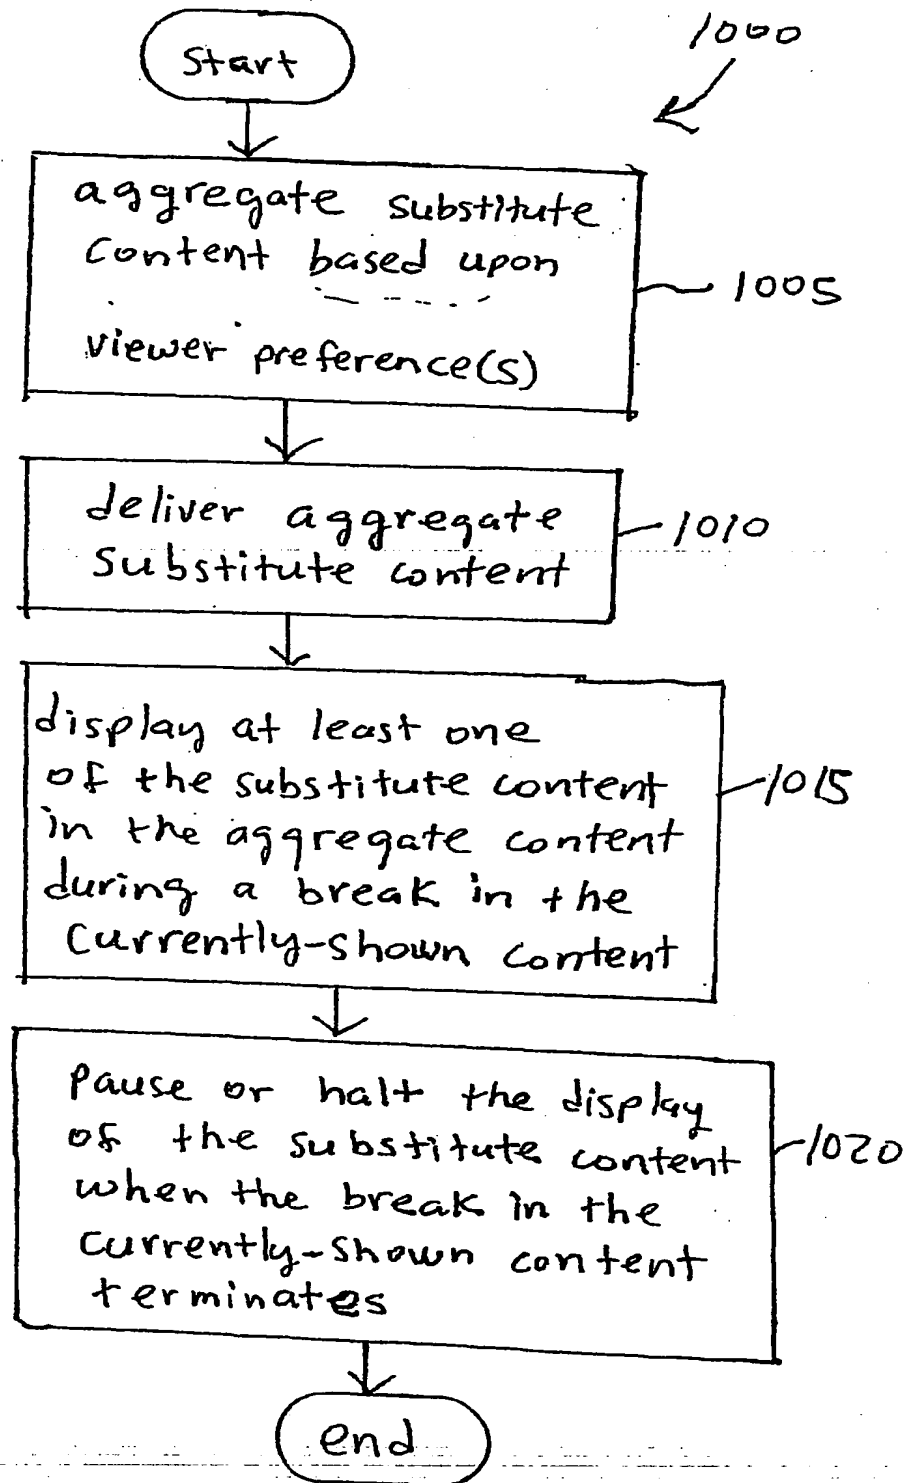 1000
Start
aggregate substitute
content based upon
viewer preference(s)
1005
deliver aggregate
substitute content
1010
display at least one
of the substitute content
in the aggregate content
during a break in the
currently-shown content
1015
pause or halt the display
of the substitute content
when the break in the
currently-shown content
terminates
1020
end